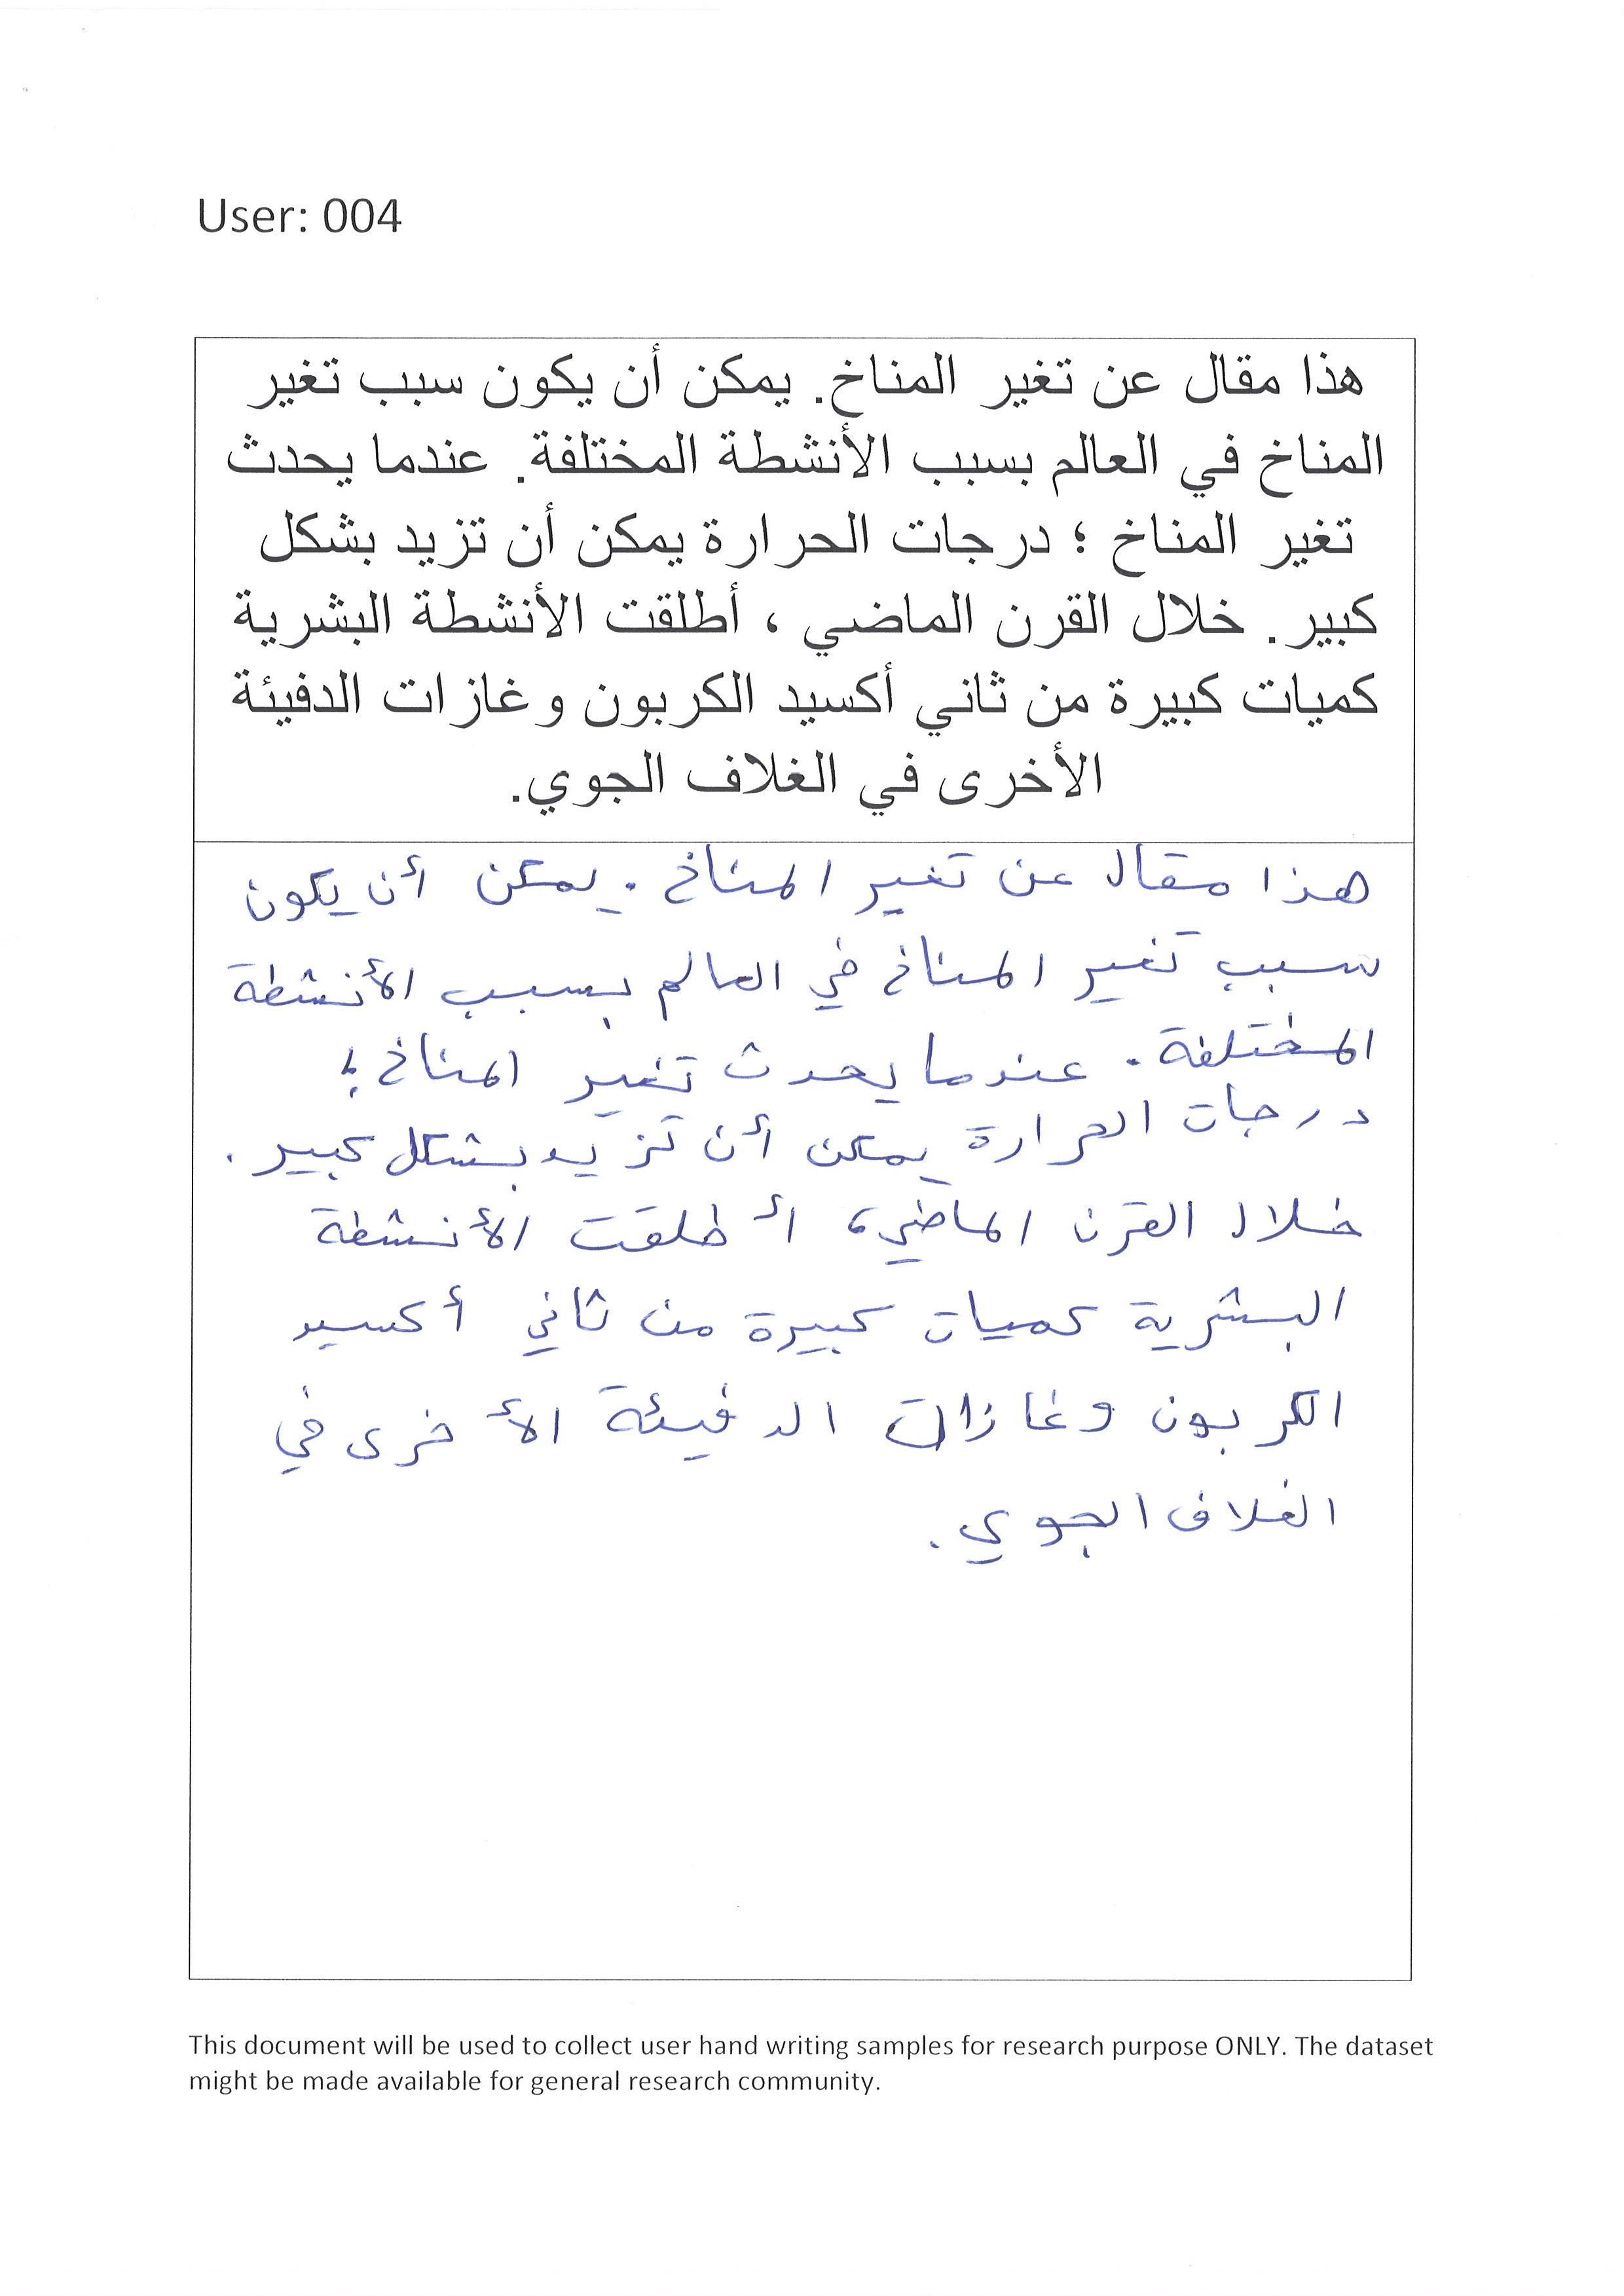 User: 004
هذا مقال عن تغير المناخ. يمكن أن يكون سبب تغير
المناخ في العالم بسبب الأنشطة المختلفة. عندما يحدث
تغير المناخ ؛ درجات الحرارة يمكن أن تزيد بشكل
كبير. خلال القرن الماضي ، أطلقت الأنشطة البشرية
كميات كبيرة من ثاني أكسيد الكربون وغازات الدفيئة
الأخرى في الغلاف الجوي.
هذا مقال عن تغير المناخ. يمكن أن يكون
سبب تغير المناخ في العالم بسبب الأنشطة
المختلفة. عندما يحدث تغير المناخ ؛
درجات الحرارة يمكن أن تزيد بشكل كبير.
خلال القرن الماضي، أطلقت الأنشطة
البشرية كميات كبيرة من ثاني أكسيد
الكربون وغازات الدفيئة الأخرى في
الغلاف الجوي.
This document will be used to collect user hand writing samples for research purpose ONLY. The dataset
might be made available for general research community.